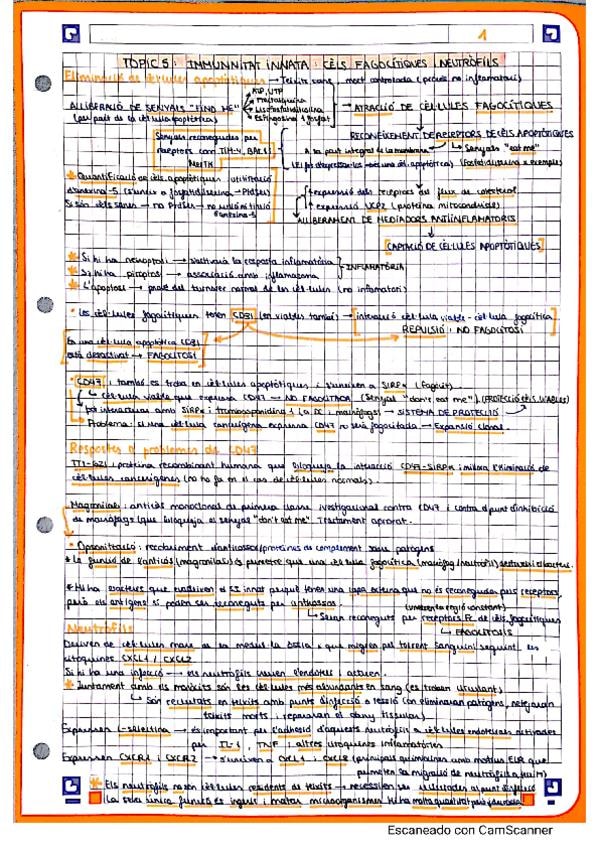 1
TOPIC 5: IMMUNNITAT INNATA: CÈLS FAGOCÍTIQUES I NEUTRÒFILS
Eliminació de cèl·lules apoptòtiques → Teixits sans, mort controlada (procés no inflamatori)
ATP, UTP
Fractalquina
ALLIBERACIÓ DE SENYALS "FIND ME" Lisofosfatidilcolina → ATRACIÓ DE CÈL·LULES FAGOCÍTIQUES
(per part de la cèl·lula apoptòtica) Esfingosina 1 fosfat
RECONEIXEMENT DE RECEPTORS DE CÈLS APOPTÒTIQUES
Senyals reconegudes per
receptors com TIM-4, BAI1 i
MerTK
A la part integral de la membrana → Senyals "eat me"
(fosfatidilserina x exemple)
* Quantificació de cèls apoptòtiques utilització
d'anexina-5 (s'uneix a fosfatidilserina - PtdSer)
Si són cèls sanes → no PtdSer → no unió
Anexina-5
↑ expressió dels receptors del flux de colesterol
↑ expressió UCP2 (proteïna mitocondrial)
ALLIBERAMENT DE MEDIADORS ANTIINFLAMATORIS
CAPTACIÓ DE CÈL·LULES APOPTÒTIQUES
* Si hi ha necroptosi → s'activarà la resposta inflamatòria
* Si hi ha piroptosi → associació amb inflamasoma
INFLAMATÒRIA
* L'apoptosi → prové del turnover normal de les cèl·lules (no inflamatori)
· Les cèl·lules fagocítiques tenen CD31 (les viables també) → interacció cèl·lula viable - cèl·lula fagocítica
REPULSIÓ: NO FAGOCITOSI
En una cèl·lula apoptòtica CD31
està desactivat → FAGOCITOSI
· CD47: també es troba en cèl·lules apoptòtiques i s'uneixen a SIRPα (fagòcit)
cèl·lula viable que expressa CD47 → NO FAGOCITADA (Senyal "don't eat me") (PROTECCIÓ CÈLS VIABLES)
pot interactuar amb SIRPα i trombospondina 1 (a DC i macròfags) → SISTEMA DE PROTECCIÓ
Problema: si una cèl·lula cancerígena expressa CD47 no serà fagocitada → Expansió clonal.
Respostes a problemes de CD47
TTI-621: proteïna recombinant humana que bloqueja la interacció CD47-SIRPα i millora l'eliminació de
cèl·lules cancerígenes (no ho fa en el cas de cèl·lules normals).
Magrolimab: anticòs monoclonal de primera classe investigacional contra CD47 i contra el punt d'inhibició
de macròfags (que bloqueja el senyal "don't eat me". Tractament aprovat.
· Opsonització: recobriment d'anticossos/proteïnes de complement sobre patògens
* La funció de l'anticòs (magrolimab) és permetre que una cèl·lula fagocítica (macròfag/neutròfil)
* Hi ha bacteris que evadeixen el SI innat perquè tenen una capa externa que no és reconeguda pels receptors,
però els antígens sí poden ser reconeguts per anticossos
(uneixen la regió constant)
Seran reconeguts per receptors Fc de cèls fagocítiques
FAGOCITOSIS
Neutròfils
Deriven de cèl·lules mare de la medul·la òssia i que migren pel torrent sanguini seguint les
citoquines CXCL1 i CXCL2
Si hi ha una infecció → els neutròfils creuen l'endoteli i actuen.
* Juntament amb els monòcits són les cèl·lules més abundants en sang (es troben circulant)
Són reclutats en teixits amb punts d'infecció o lesió (on eliminaran patògens, netejaran
teixits morts i repararan el dany tissular)
Expressen L-selectina → és important per l'adhesió d'aquests neutròfils a cèl·lules endotelials activades
per IL-1, TNF i altres citoquines inflamatòries
Expressen CXCR1 i CXCR2 → s'uneixen a CXCL1 i CXCL8 (principals quimiocines amb motius ELR que
permeten la migració de neutròfils a teixits)
* Els neutròfils no són cèl·lules residents de teixits → necessiten ser reclutades al punt d'infecció
La seva única funció és ingerir i matar microorganismes
Escaneado con CamScanner